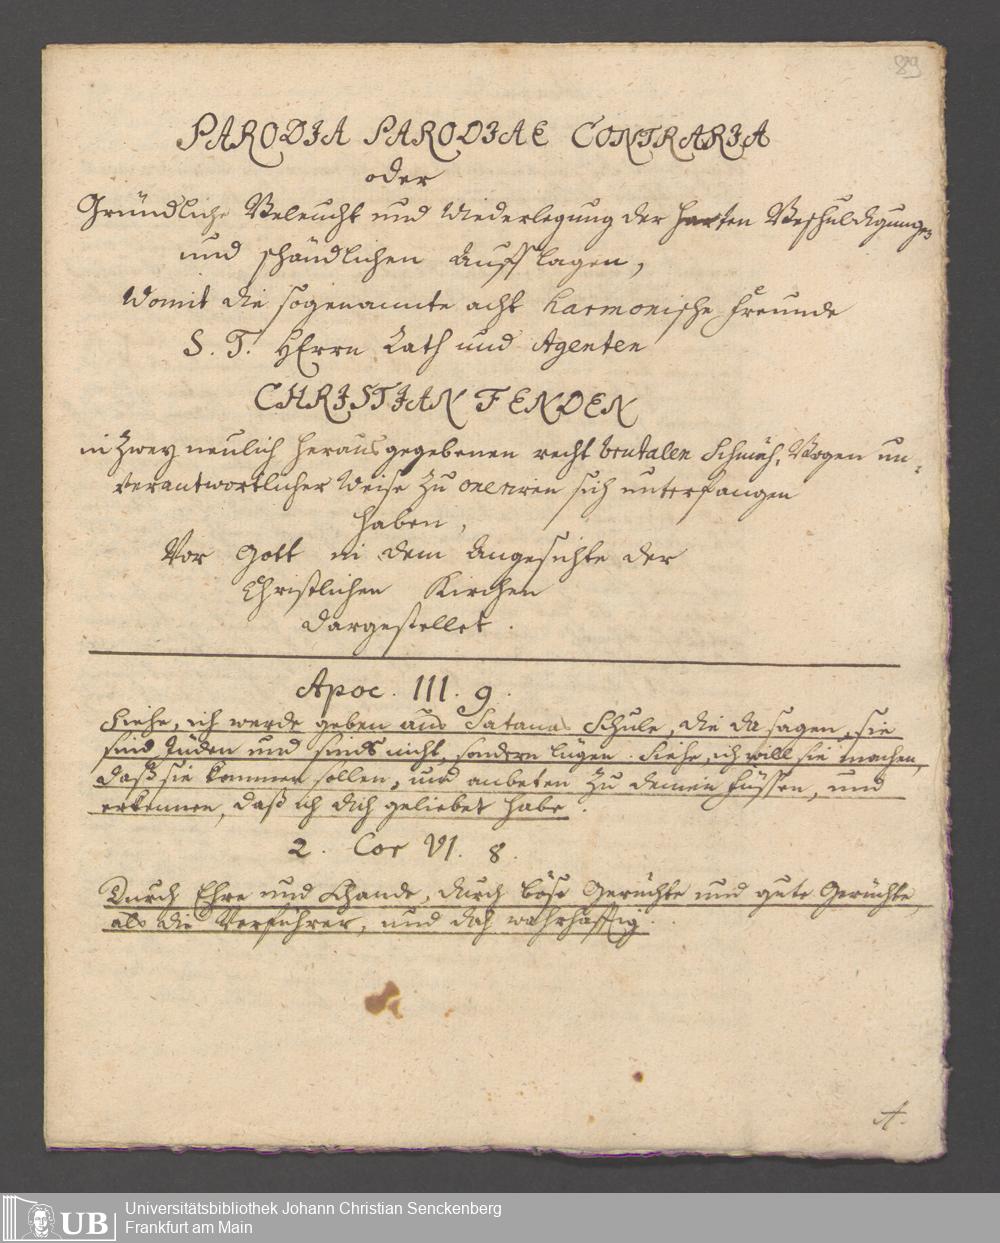 89
PARODIA PARODIAE CONTRARIA
oder
Gründliche Beleucht und Wiederlegung der harten Beschuldigungen
und schändlichen Aufflagen,
Womit die sogenannte acht harmonische Freunde
S. T. HErrn Rath und Agenten
CHRISTIAN FENDEN
in zwey neulich herausgegebenen recht brutalen Schmäh-Bogen un-
verantwortlicher Weise zu oneriren sich unterfangen
haben,
Vor Gott in dem Angesichte der
Christlichen Kirchen
dargestellet.
Apoc. III. 9.
Siehe, ich werde geben aus Satanas Schule, die da sagen, sie
sind Jüden und sinds nicht, sondern lügen. Siehe, ich will sie machen,
daß sie kommen sollen, und anbeten zu deinen Füssen, und
erkennen, daß ich dich geliebet habe.
2. Cor VI. 8.
Durch Ehre und Schande, durch böse Gerüchte und gute Gerüchte,
als die Verführer, und doch wahrhafftig.
A.
UB
Universitätsbibliothek Johann Christian Senckenberg
Frankfurt am Main